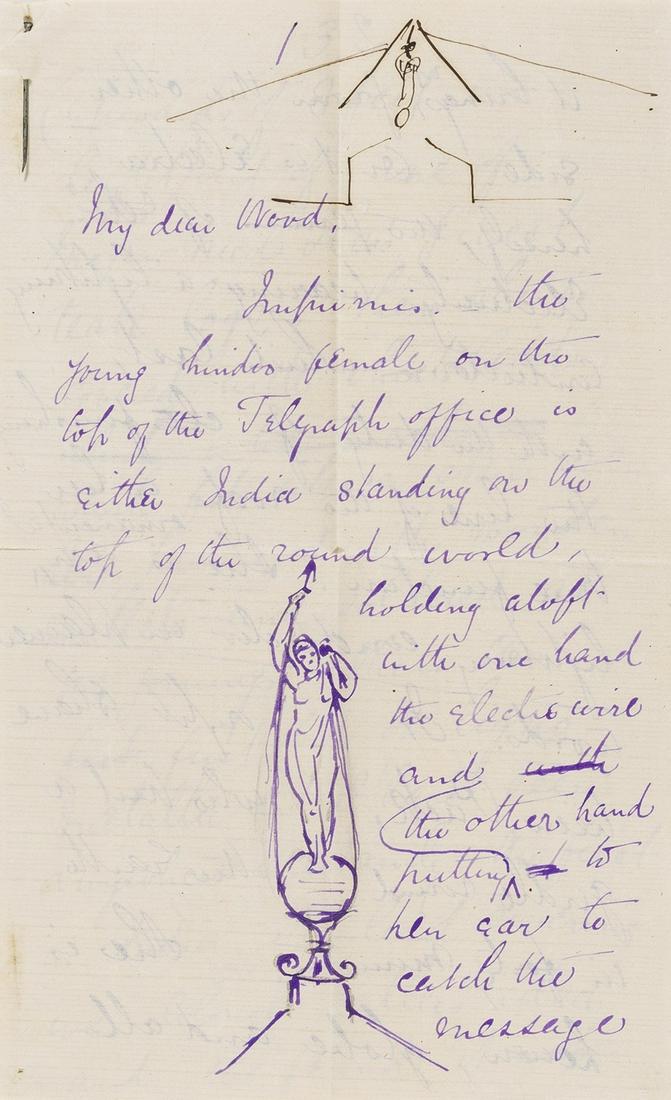 1
My dear Wood,
Imprimis. – the
young hindoo female on the
top of the Telegraph office is
either India standing on the
top of the round world,
holding aloft
with one hand
the electric wire
and with
the other hand
putting it to
her ear to
catch the
message